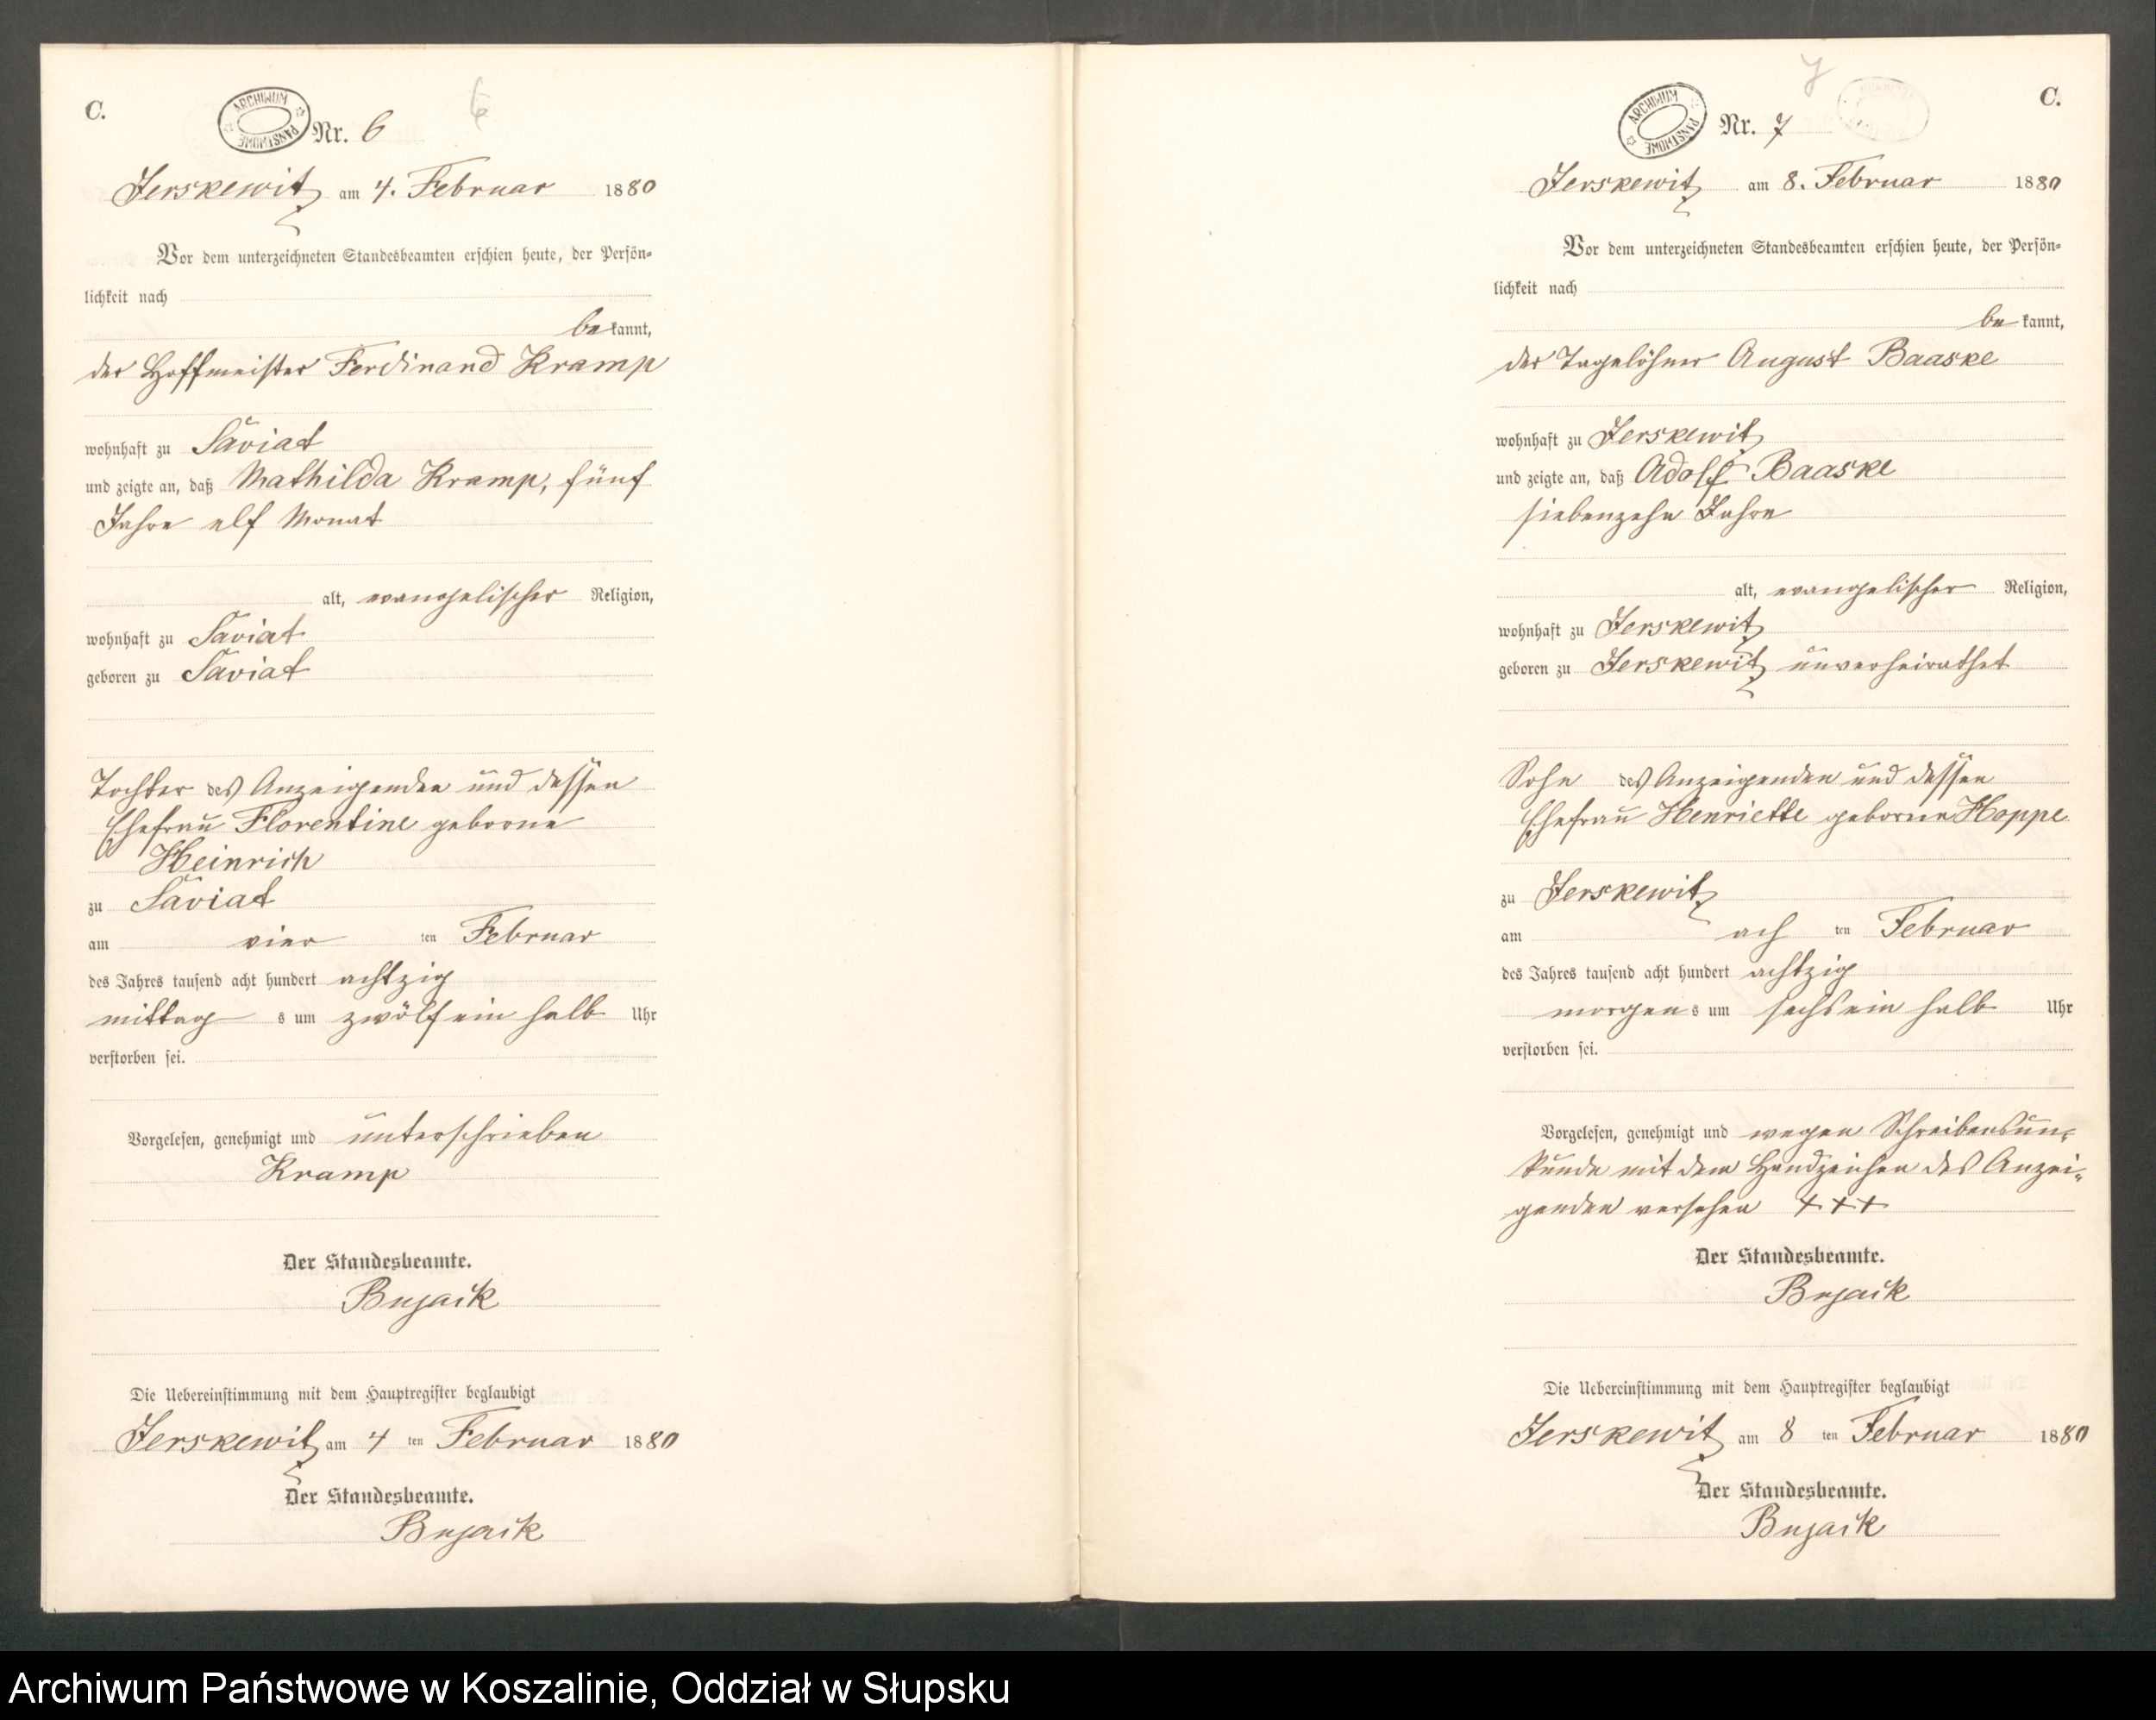 C.
ARCHIWUM PAŃSTWOWE
Nr. 6
6
Jerskewitz am 4. Februar 1880
Vor dem unterzeichneten Standesbeamten erschien heute, der Persön-
lichkeit nach
be kannt,
der Hoffmeister Ferdinand Kramp
wohnhaft zu Saviat
und zeigte an, daß Mathilda Kramp, fünf
Jahre elf Monat
alt, evangelischer Religion,
wohnhaft zu Saviat
geboren zu Saviat
Tochter des Anzeigenden und dessen
Ehefrau Florentine geborne
Heinrich
zu Saviat
am vier ten Februar
des Jahres tausend acht hundert achtzig
mittag s um zwölf ein halb Uhr
verstorben sei.
Vorgelesen, genehmigt und unterschrieben
Kramp
Der Standesbeamte.
Bujack
Die Uebereinstimmung mit dem Hauptregister beglaubigt
Jerskewitz am 4 ten Februar 1880
Der Standesbeamte.
Bujack
C.
7
ARCHIWUM PAŃSTWOWE
Nr. 7
Jerskewitz am 8. Februar 1880
Vor dem unterzeichneten Standesbeamten erschien heute, der Persön-
lichkeit nach
be kannt,
der Tagelöhner August Baaske
wohnhaft zu Jerskewitz
und zeigte an, daß Adolf Baaske
siebenzehn Jahre
alt, evangelischer Religion,
wohnhaft zu Jerskewitz
geboren zu Jerskewitz unverheirathet
Sohn des Anzeigenden und dessen
Ehefrau Henriette geborne Hoppe
zu Jerskewitz
am ach ten Februar
des Jahres tausend acht hundert achtzig
morgen s um sechs ein halb Uhr
verstorben sei.
Vorgelesen, genehmigt und wegen Schreibensun-
kunde mit dem Handzeichen des Anzei-
genden versehen +++
Der Standesbeamte.
Bujack
Die Uebereinstimmung mit dem Hauptregister beglaubigt
Jerskewitz am 8 ten Februar 1880
Der Standesbeamte.
Bujack
Archiwum Państwowe w Koszalinie, Oddział w Słupsku